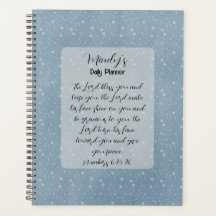 Mindy's
Daily Planner
The Lord bless you and
keep you the Lord make
his face shine on you and
be gracious to you the
Lord turn his face
toward you and give
you peace
Numbers 6:24-26